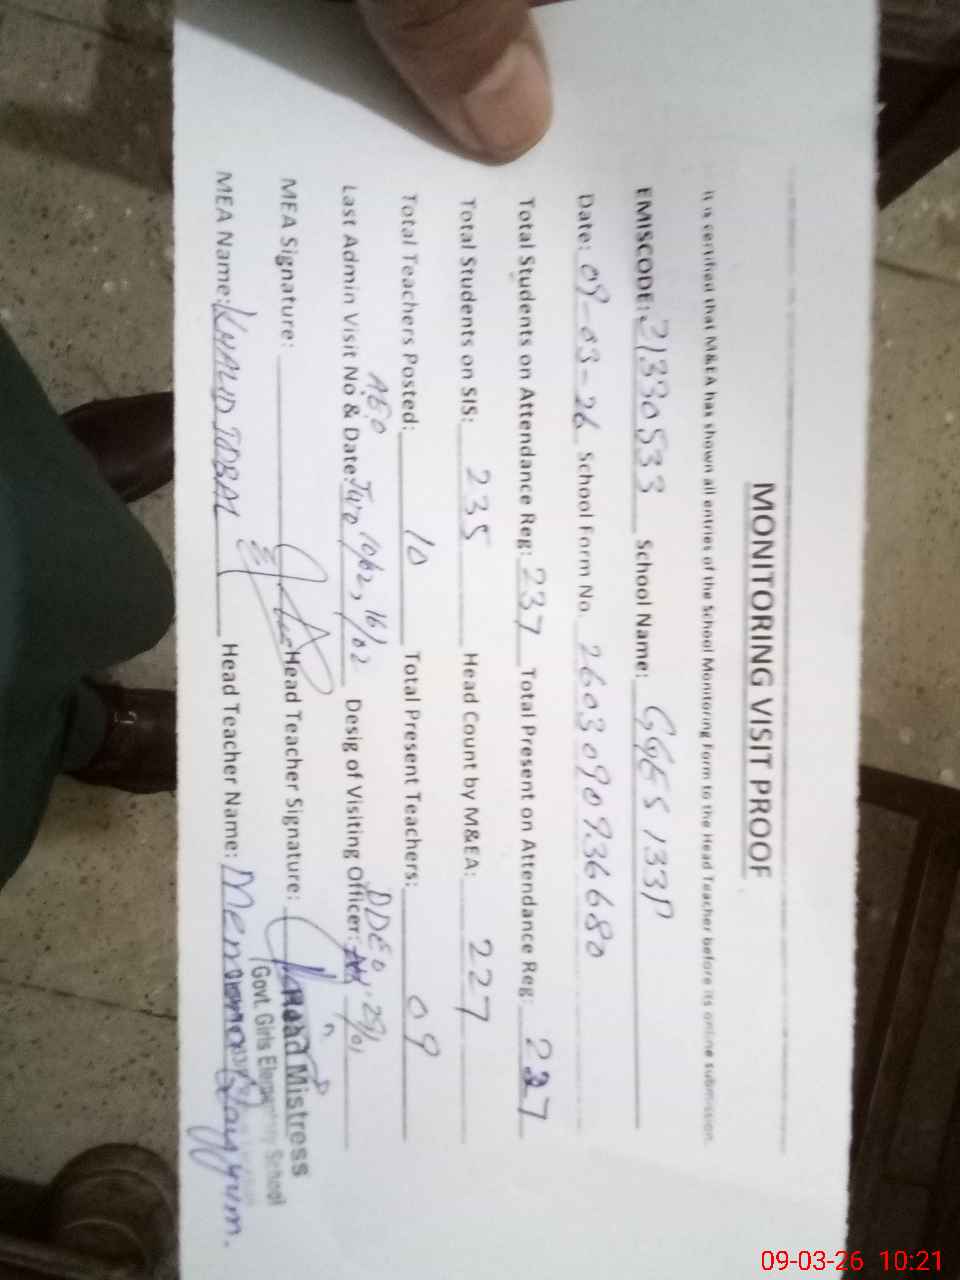 MONITORING VISIT PROOF
It is certified that M&EA has shown all entries of the School Monitoring Form to the Head Teacher before its online submission.
EMISCODE: 31330533 School Name: GGES 133P
Date: 09-03-26 School Form No. 2603090936680
Total Students on Attendance Reg: 237 Total Present on Attendance Reg: 227
Total Students on SIS: 235 Head Count by M&EA: 227
Total Teachers Posted: 10 Total Present Teachers: 09
AEO DDEO
Last Admin Visit No & Date: Two 10/02, 16/02 Desig of Visiting Officer: 29/01
MEA Signature: Head Teacher Signature:
Head Mistress
Govt Girls Elementary School
MEA Name: KHALID IQBAL Head Teacher Name: Qayyum.
09-03-26 10:21